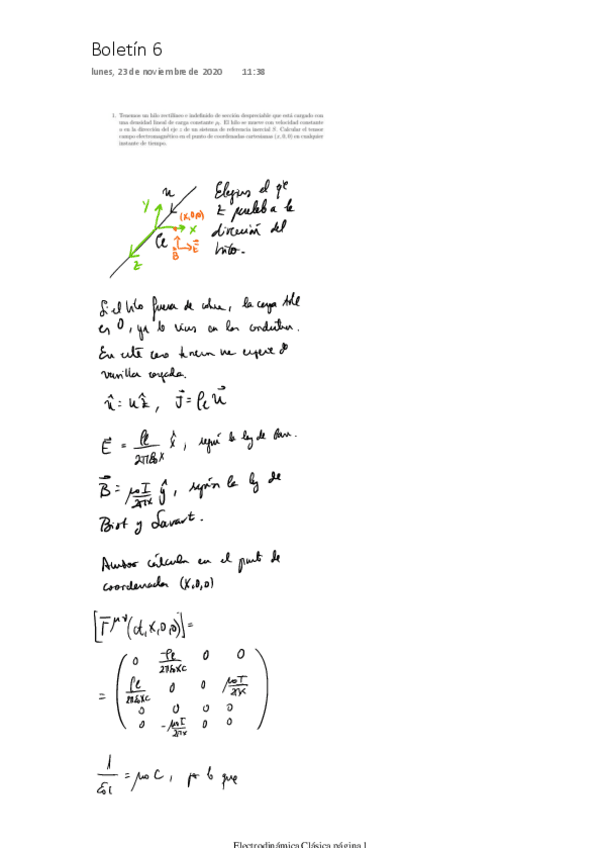 Boletín 6
lunes, 23 de noviembre de 2020 11:38
1. Tenemos un hilo rectilíneo e indefinido de sección despreciable que está cargado con
una densidad lineal de carga constante ρl. El hilo se mueve con velocidad constante
u en la dirección del eje z de un sistema de referencia inercial S. Calcular el tensor
campo electromagnético en el punto de coordenadas cartesianas (x, 0, 0) en cualquier
instante de tiempo.
u
y
(x,0,0)
x
ρl
B E
z
el eje
z paralelo a la
dirección del
hilo.
Si el hilo fuera de cobre, la carga
es 0, ya lo vimos en los conductores.
En este caso
varilla cargada.
û = u ẑ, J⃗ = ρl u⃗
E⃗ = ρl / 2πε₀x x̂, según la ley de
B⃗ = μ₀I / 2πx ŷ, según la ley de
Biot y Savart.
Ambos en el punto de
coordenadas (x,0,0)
[F^μν(ct,x,0,0)] =
0 -ρl/2πε₀xc 0 0
= ρl/2πε₀xc 0 0 μ₀I/2πx
0 0 0 0
0 -μ₀I/2πx 0 0
1/ε₀c = μ₀c, por lo que
Electrodinámica Clásica página 1